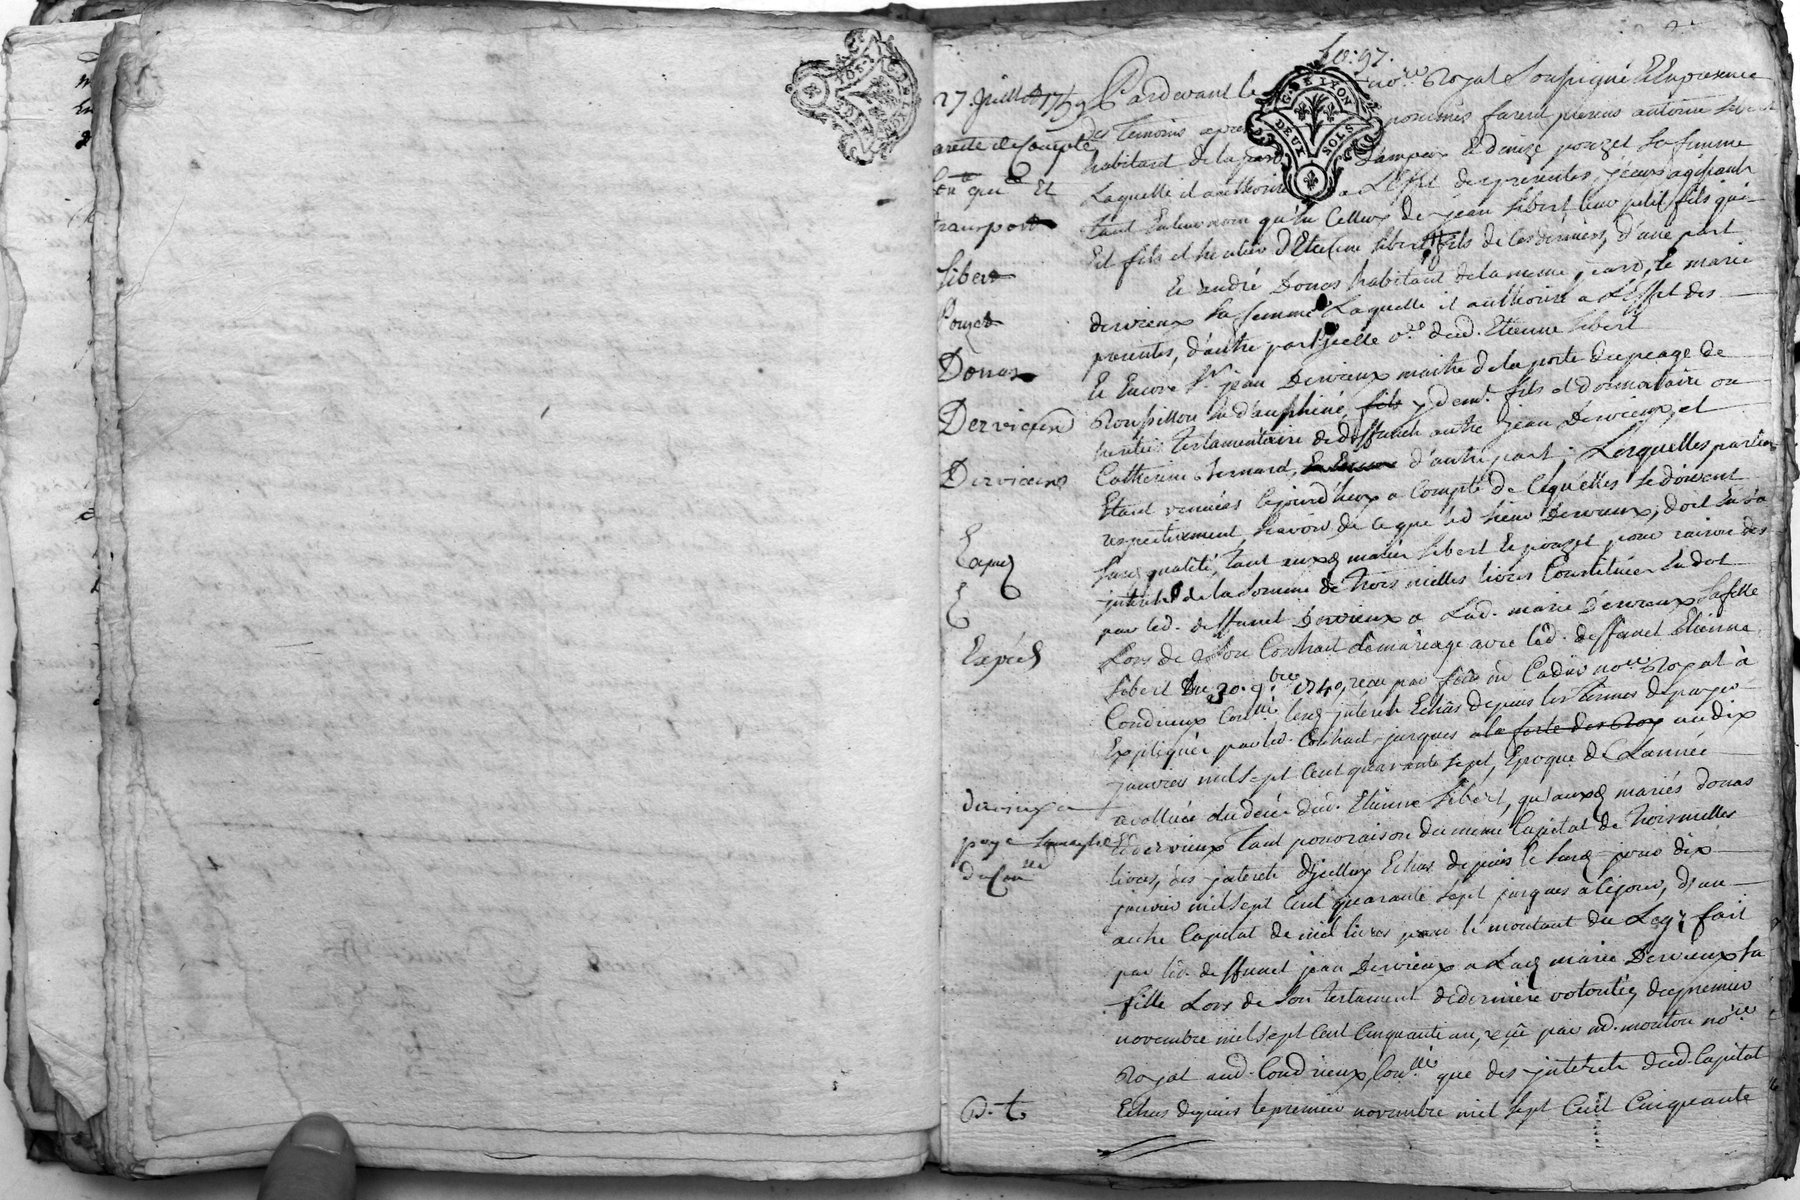 fo: 97.
G. DE LYON
DEUX SOLS
27. Juillet 1759
areste de Compte
Et
transport
Sibert
Pouzet
Donas
Dervieux
Dervieux
Expéé
Dervieux a
paye
du Con.lle
P. t.
Pardevant le no.re Royal Soussigné Et En presence
des Temoins apres nommés furent presens antoine Sibert
habitant de la par d'ampuis Et denize pouzet Sa femme
Laquelle il authorise a L'effet des presentes, yceux agissant
tant En leur nom qu'En Celluy de jean Sibert leur petit fils qui
Est fils et heritier d'Etienne Sibert fils de ces derniers, d'une part
Et andré Donas habitant de la meme parr, Et marie
dervieux Sa femme Laquelle il authorise a L'effet des
presentes, d'autre part ycelle v.ve dud. Etienne Sibert
Et Encore Sr. jean Dervieux maitre de la poste du peage de
Roussillon En d'auphiné, fils y dem.t fils et donnataire ou
heritier Testamentaire de deffunct autre jean Dervieux et
Catherine Bernard, Et Encore d'autre part. Lesquelles parties
Etant venuës Cejourd'huy a Compte de Cequ'Elles Se doivent
respectivement, Scavoir de Ce que led. Sieur Dervieux, doit En Sa
Susd. qualité, tant auxd. mariés Sibert Et pouzet pour raison des
jnterets de la Somme de trois milles livres Constituée En dot
par led. deffunct Dervieux a Lad. marie Dervieux Sa fille
Lors de Son Contrait de mariage avec led. deffunct Etienne
Sibert du 30. 9.bre 1740, reçu par feu m Cadier no.re Royal à
Condrieux Con.llé lesd. jnterets Echûs depuis les termes de payer
Expliqués par led. Contrait jusques a la feste des Roy au dix
janvier mil Sept Cent quarante Sept, Epoque de L'année
a collucé du decé dud. Etienne Sibert, qu'auxd. mariés donas
Et dervieux Tant pour raison du meme Capital de Troismilles
livres, des jnterets d'jcelluy Echus depuis le Susd. jour dix
janvier mil Sept Cent quarante Sept jusques à Cejour, d'un
autre Capital de mil livres pour le montant du Legs, fait
par led. deffunct jean Dervieux a Lad. marie Dervieux Sa
fille Lors de Son testament de derniere volonté, du premier
novembre mil Sept Cent Cinquante un, reçû par md. mouton no.re
Royal aud. Condrieux Con.llé que des jnterets dud. Capital
Echus depuis le premier novembre mil Sept Cent Cinquante